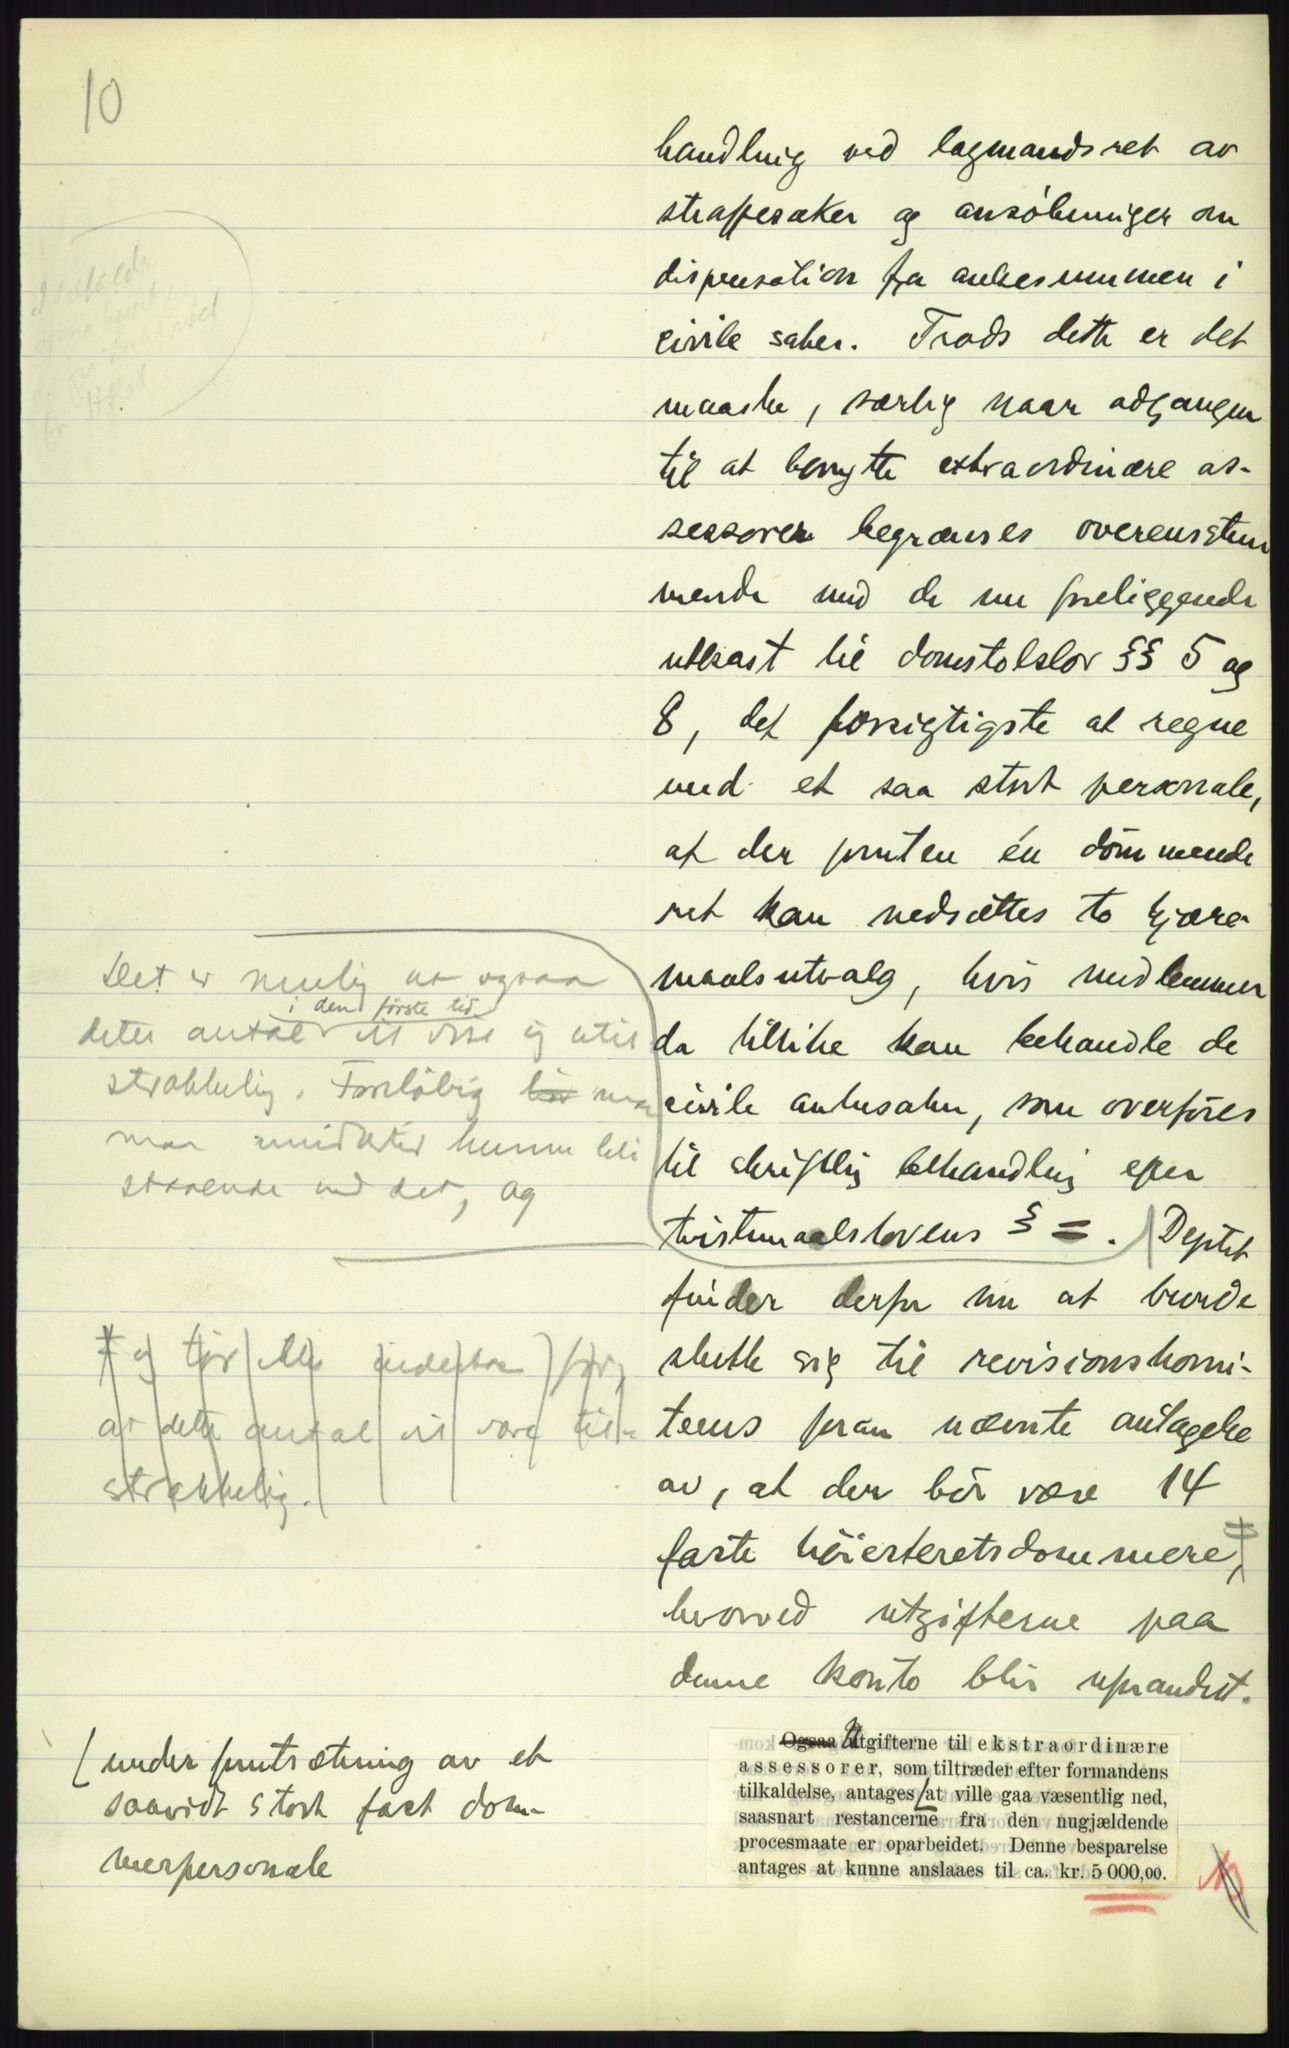 10
handling ved lagmandsret av
straffesaker og ansökninger om
dispensation fra ankesummen i
civile saker. Trods dette er det
maaske, særlig naar adgangen
til at benytte extraordinære as-
sessorer begrænses overensstem
mende med de nu foreliggende
utkast til domstolslov §§ 5 og
8, det forsigtigste at regne
med et saa stort personale,
at der foruten én dömmende
ret kan nedsættes to kjære-
maalsutvalg, hvis medlemmer
da tillike kan behandle de
civile ankesaker, som overföres
til skriftlig behandling efter
tvistemaalslovens § = . Deptet
finder derfor nu at burde
slutte sig til revisionskomi-
teens foran nævnte antagelse
av, at der bör være 14
faste höiesteretsdommere,
hvorved utgifterne paa
denne konto blir uforandret.
Det er mulig at ogsaa
i den förste tid
dette antal vil vise sig util
strækkelig. Foreløbig bør man
man imidlertid kunne bli
staaende ved det, og
og tör ikke indestaa for,
at dette antal vil være til-
strækkelig.
[under forutsætning av et
saavidt stort fast dom-
merpersonale
Ogsaa Utgifterne til ekstraordinære
assessorer, som tiltræder efter formandens
tilkaldelse, antages [at ville gaa væsentlig ned,
saasnart restancerne fra den nugjældende
procesmaate er oparbeidet. Denne besparelse
antages at kunne anslaaes til ca. kr. 5 000,00.